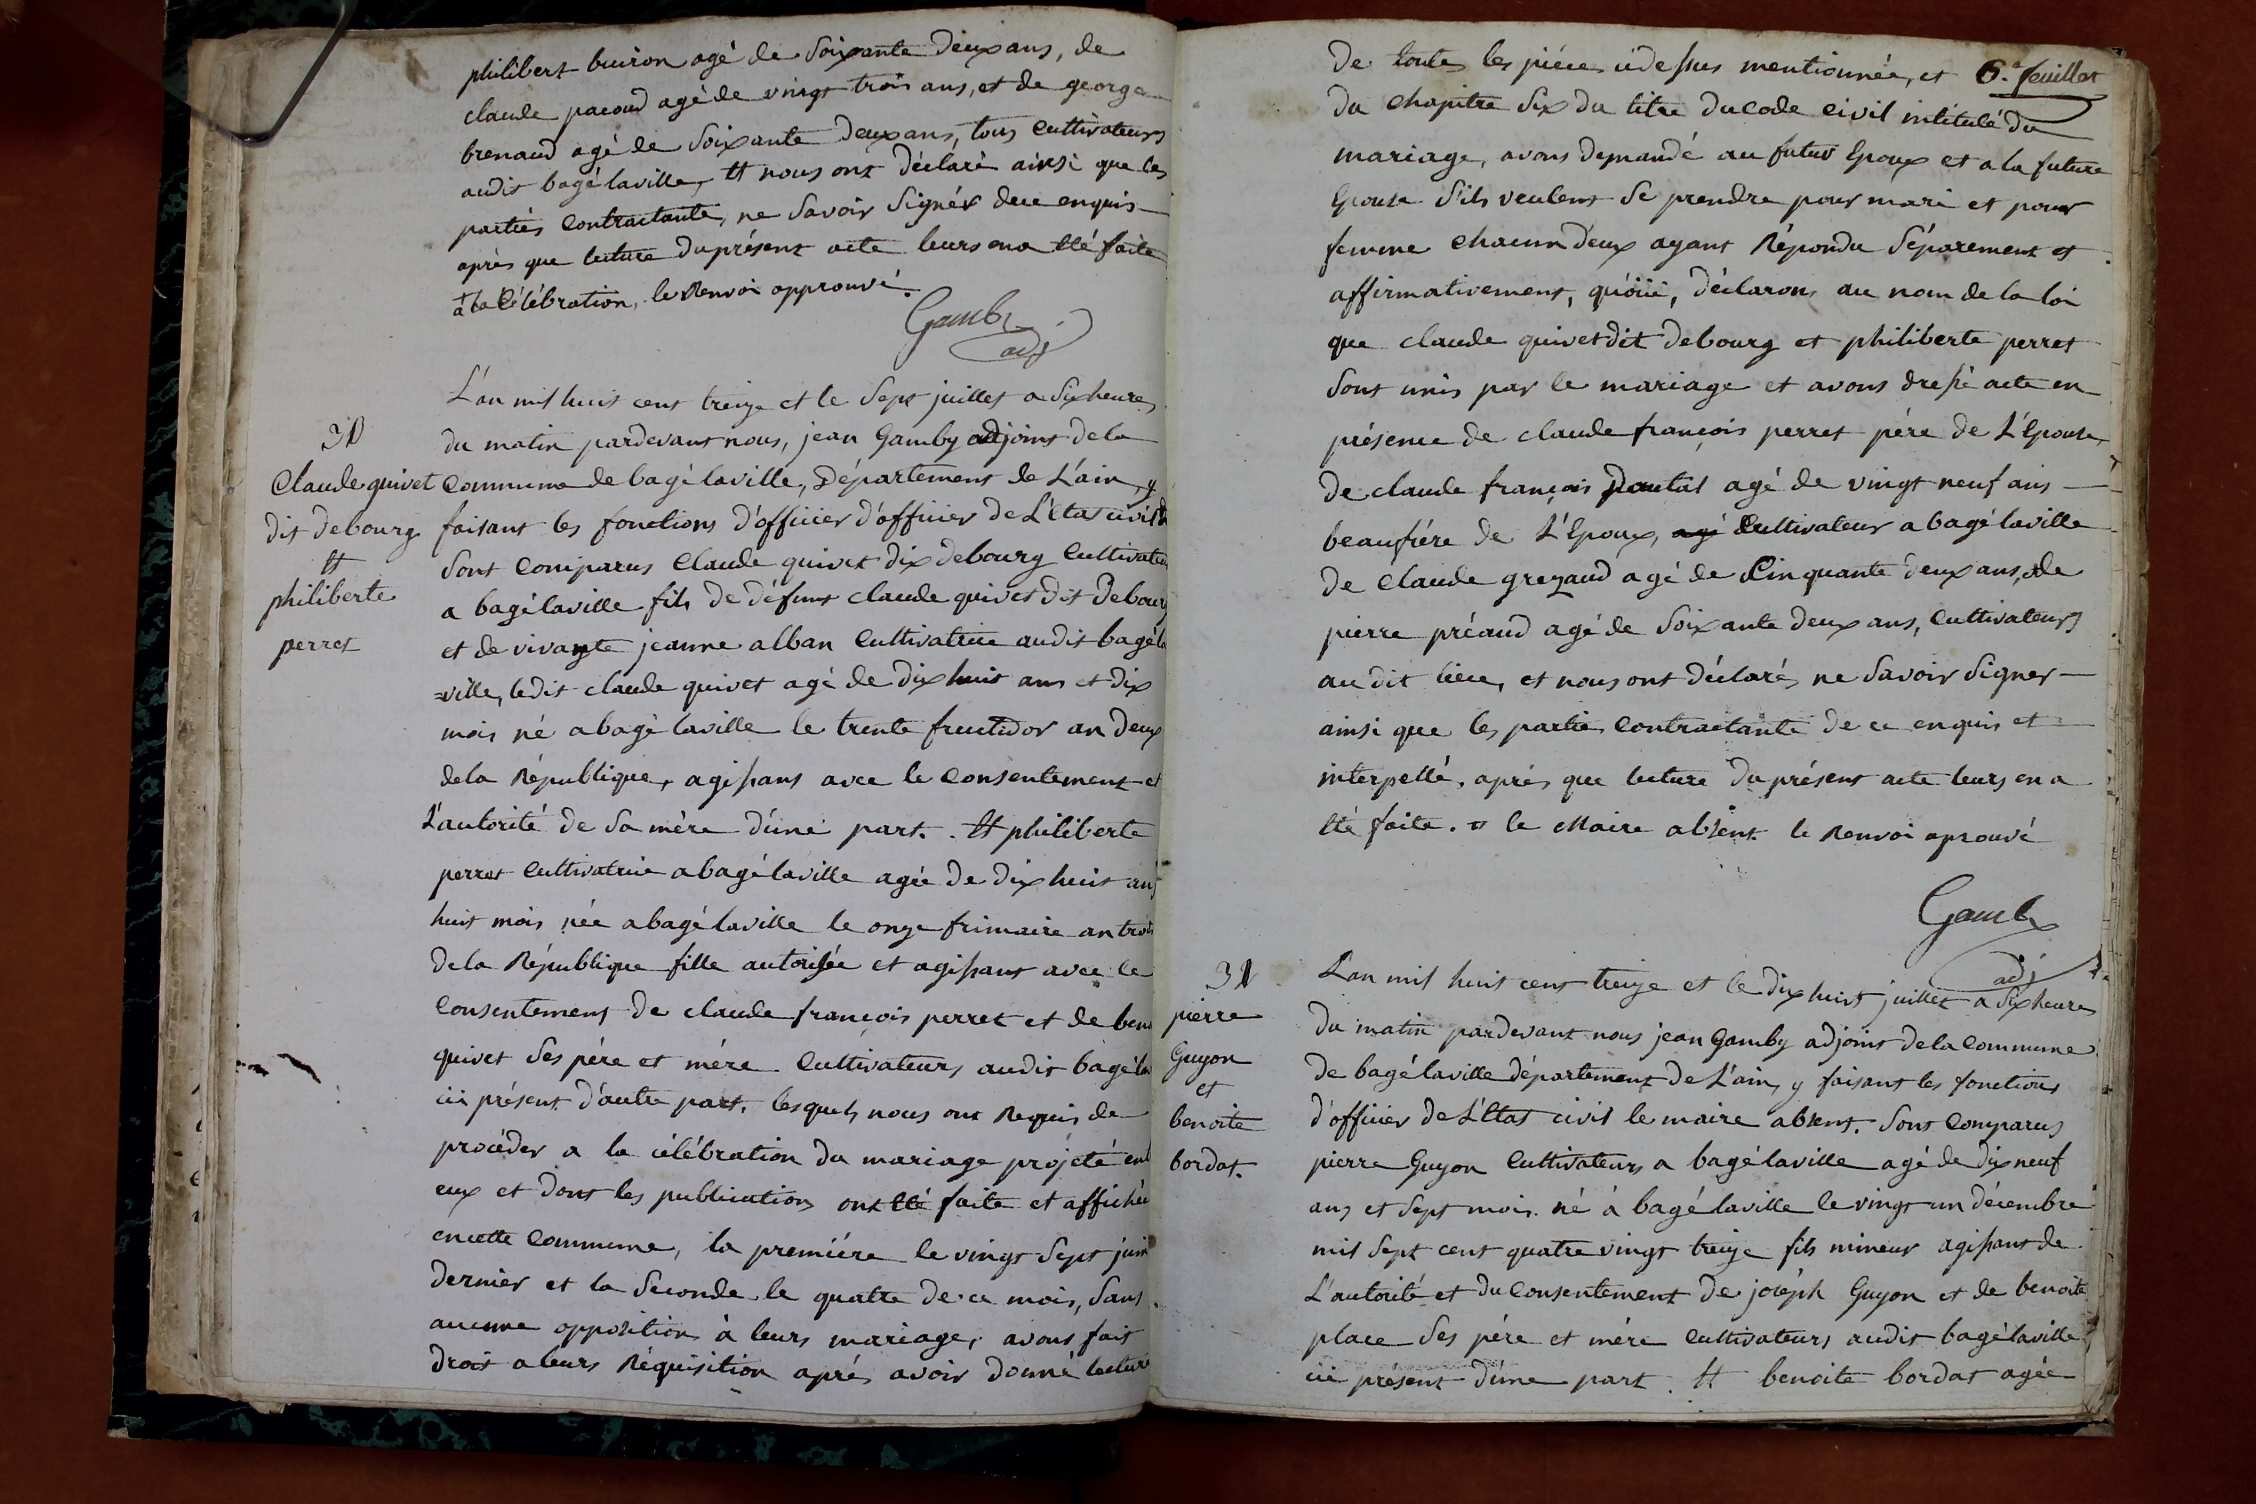 philibert buiron agé de soixante deux ans, de
claude pacoud agé de vingt trois ans, et de george
brenaud agé de soixante deux ans, tous cultivateurs
audit bagé laville, et nous ont déclaré ainsi que les
parties contractante, ne savoir signér de ce enquis
après que lecture du présent acte leurs en a été faite
+ a la célébration, le renvoi approuvé.
Gamby
adj
L'an mil huit cent treize et le sept juillet a six heures
du matin pardevant nous, jean Gamby adjoint de la
commune de bagé laville, Département de L'ain, y
faisant les fonctions d'officier d'officier de L'état civil
sont comparus Claude quivet dix debourg cultivateur
a bagé laville fils de défunt claude quivet dit Debourg
et de vivante jeanne alban cultivatrice audit bagé la
=ville, ledit claude quivet agé de dix huit ans et dix
mois né a bagé laville le trente fructidor an deux
de la République, agissant avec le consentement et
L'autorité de sa mère d'une part. Et philiberte
perret cultivatrice a bagé laville agée de dix huit ans
huit mois née a bagé laville le onze frimaire an trois
de la République fille autorisée et agissant avec le
consentement de claude françois perret et de
quivet ses pére et mére cultivateurs audit bagé la
ici présent d'autre part. lesquels nous ont Requis de
procéder a la célébration du mariage projeté
eux et dont les publications ont été faite et affichée
en cette commune, la premiére le vingt sept juin
dernier et la seconde le quatre de ce mois, sans
aucune opposition à leurs mariage, avons fait
droit a leurs Réquisition aprés avoir donné lecture
3D
Claude quivet
dit debourg
et
philiberte
perret
6.e feuillet
de toutes les piéces ci dessus mentionnée, et
du chapitre six du titre du code civil intitulé du
mariage, avons demandé au futur Epoux et a la future
Epouse s'ils veulent se prendre pour mari et pour
femme chacun d'eux ayant Répondu séparement et
affirmativement, qu'oüi, déclarons au nom de la loi
que claude quivet dit debourg et philiberte perret
sont unis par le mariage et avons dressé acte en
présence de claude françois perret pére de L'Epouse,
de claude françois agé de vingt neuf ans
beaufrére de L'Epoux, agé cultivateur a bagé laville
de Claude grezaud agé de Cinquante deux ans, de
pierre préaud agé de soixante deux ans, cultivateurs
au dit lieu, et nous ont déclarés ne savoir signer
ainsi que les partie contractante de ce enquis et
interpellé. aprés que lecture du présent acte leurs en a
été faite. le Maire absent. le Renvoi aprouvé
Gamby
adj
3D
pierre
Guyon
et
benoite
bordat.
L'an mil huit cent treize et le dix huit juillet a six heures
du matin pardevant nous jean Gamby adjoint de la commune
de bagé laville département de L'ain, y faisant les fonctions
d'officier de L'Etat civil le maire absent. sont comparus
pierre Guyon cultivateurs a bagé laville agé de dix neuf
ans et sept mois. né à bagé laville le vingt un décembre
mil sept cent quatre vingt treize fils mineur agissant de
L'autorité et du consentement de joséph Guyon et de benoite
place ses pére et mére cultivateurs audit bagé laville
ici présent d'une part. Et benoite bordat agée